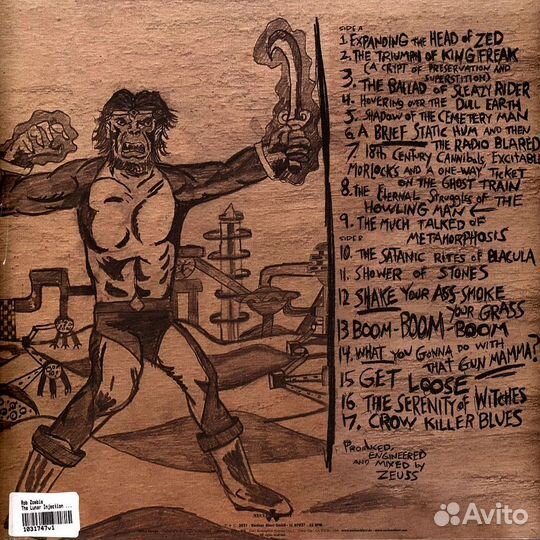 SIDE A
1. EXPANDING THE HEAD OF ZED
2. THE TRIUMPH OF KING FREAK
(A CRYPT OF PRESERVATION AND
SUPERSTITION)
3. THE BALLAD OF SLEAZY RIDER
4. HOVERING OVER THE DULL EARTH
5. SHADOW OF THE CEMETERY MAN
6. A BRIEF STATIC HUM AND THEN
THE RADIO BLARED
7. 18th CENTURY CANNIBALS, EXCITABLE
MORLOCKS AND A ONE-WAY TICKET
ON THE GHOST TRAIN
8. THE ETERNAL STRUGGLES OF THE
HOWLING MAN
9. THE MUCH TALKED OF
METAMORPHOSIS
SIDE B
10. THE SATANIC RITES OF BLACULA
11. SHOWER OF STONES
12 SHAKE YOUR ASS-SMOKE
YOUR GRASS
13 BOOM-BOOM-BOOM
14. WHAT YOU GONNA DO WITH
THAT GUN MAMMA?
15 GET LOOSE
16 THE SERENITY OF WITCHES
17. CROW KILLER BLUES
PRODUCED,
ENGINEERED
AND MIXED BY
ZEUSS
Rob Zombie
The Lunar Injection ...
1031747v1
Avito